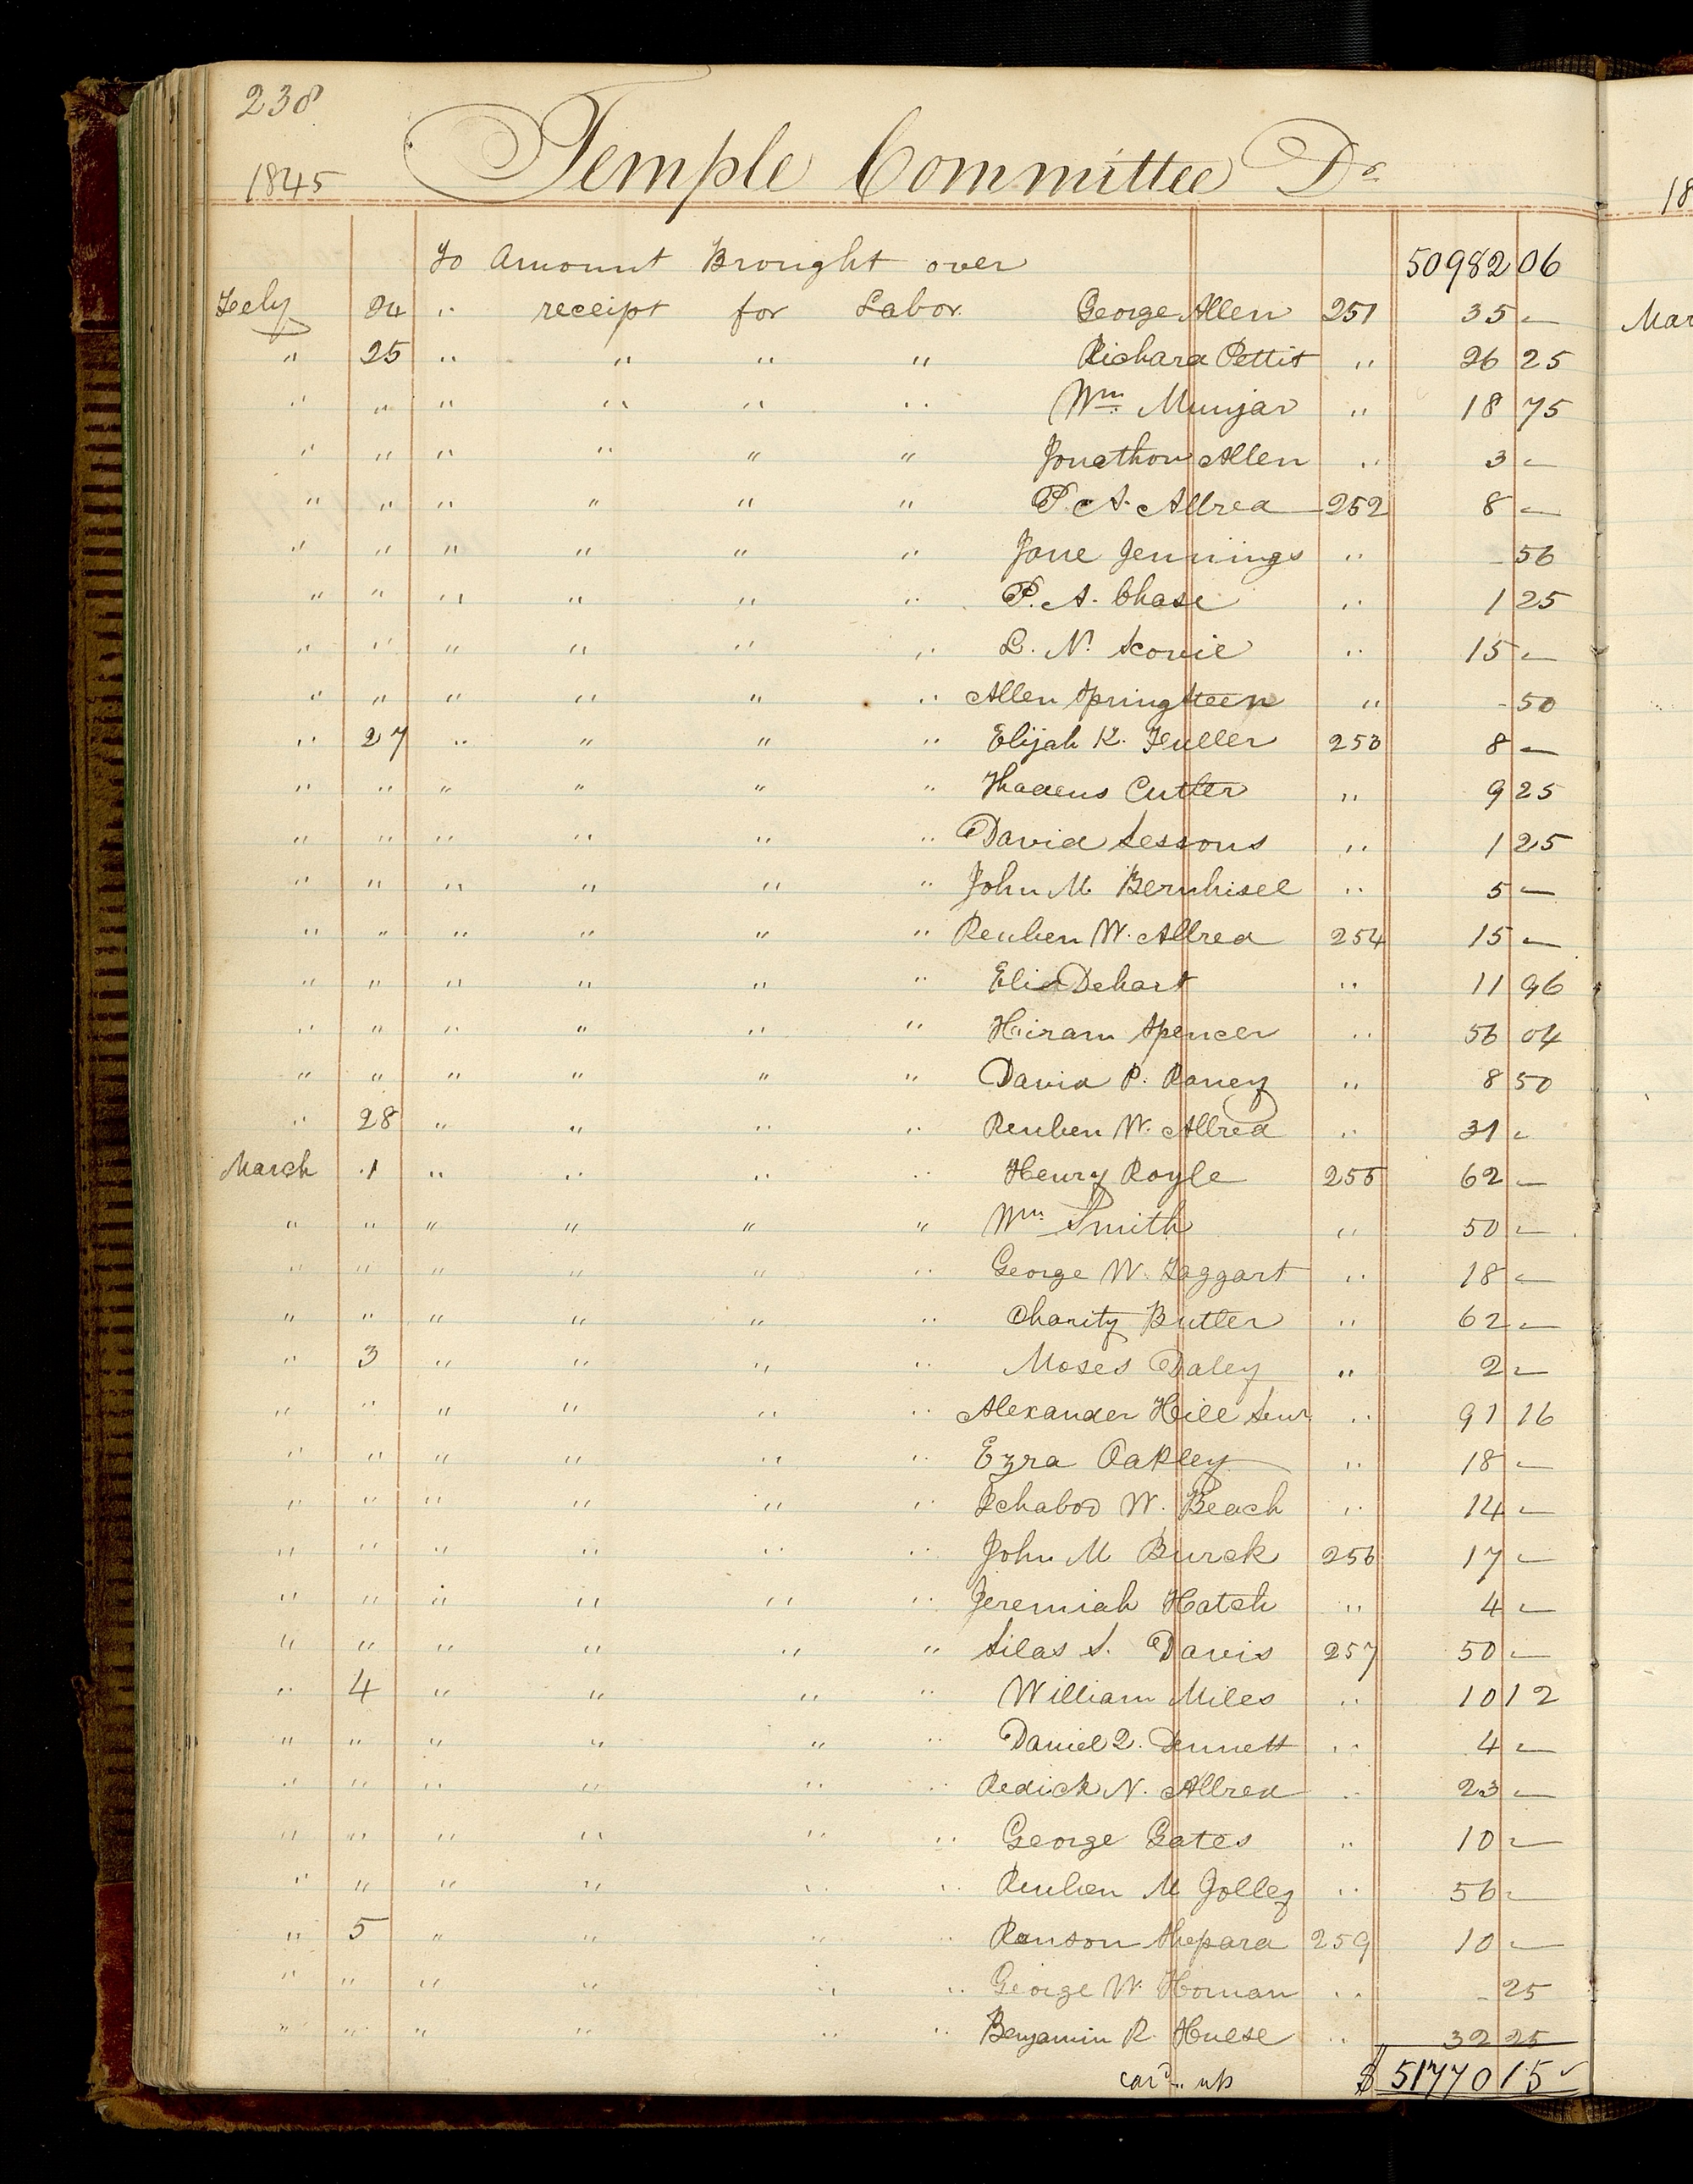 238
1845 Temple Committee Dr.
To Amount Brought over 50982 06
Feby 24 " receipt for Labor. George Allen 251 35 —
" 25 " " " " Richard Pettit " 26 25
" " " " " " Wm Munjar " 18 75
" " " " " " Jonathon Allen " 3 —
" " " " " " P. A. Allred 252 8 —
" " " " " " Jane Jennings " - 56
" " " " " " P. A. Chase " 1 25
" " " " " " L. N. Scovil " 15 —
" " " " " " Allen Springsteen " - 50
" 27 " " " " Elijah K. Fuller 253 8 —
" " " " " " Thadeus Cutler " 9 25
" " " " " " David Sessons " 1 25
" " " " " " John M Bernhisel " 5 —
" " " " " " Reuben W. Allred 254 15 —
" " " " " " Eli Dehart " 11 96
" " " " " " Hiram Spencer " 56 04
" " " " " " David P. Raney " 8 50
" 28 " " " " Reuben W. Allred " 31 —
March 1 " " " " Henry Royle 255 62 —
" " " " " " Wm Smith " 50 —
" " " " " " George W. Taggart " 18 —
" " " " " " Charity Butler " 62 —
" 3 " " " " Moses Daley " 2 —
" " " " " " Alexander Hill Senr " 91 16
" " " " " " Ezra Oakley " 18 —
" " " " " " Ichabod W. Beach " 14 —
" " " " " " John M Burck 256 17 —
" " " " " " Jeremiah Hatch " 4 —
" " " " " " Silas S. Davis 257 50 —
" 4 " " " " William Miles " 10 12
" " " " " " Daniel Q. Dennett " 4 —
" " " " " " Redick N. Allred " 23 —
" " " " " " George Gates " 10 —
" " " " " " Reuben M Jolley " 56 —
" 5 " " " " Ranson Shepard 259 10 —
" " " " " " George W. Homan " - 25
" " " " " " Benjamin R. Hulse " 32 25
card up $ 51770 15
18
Mar